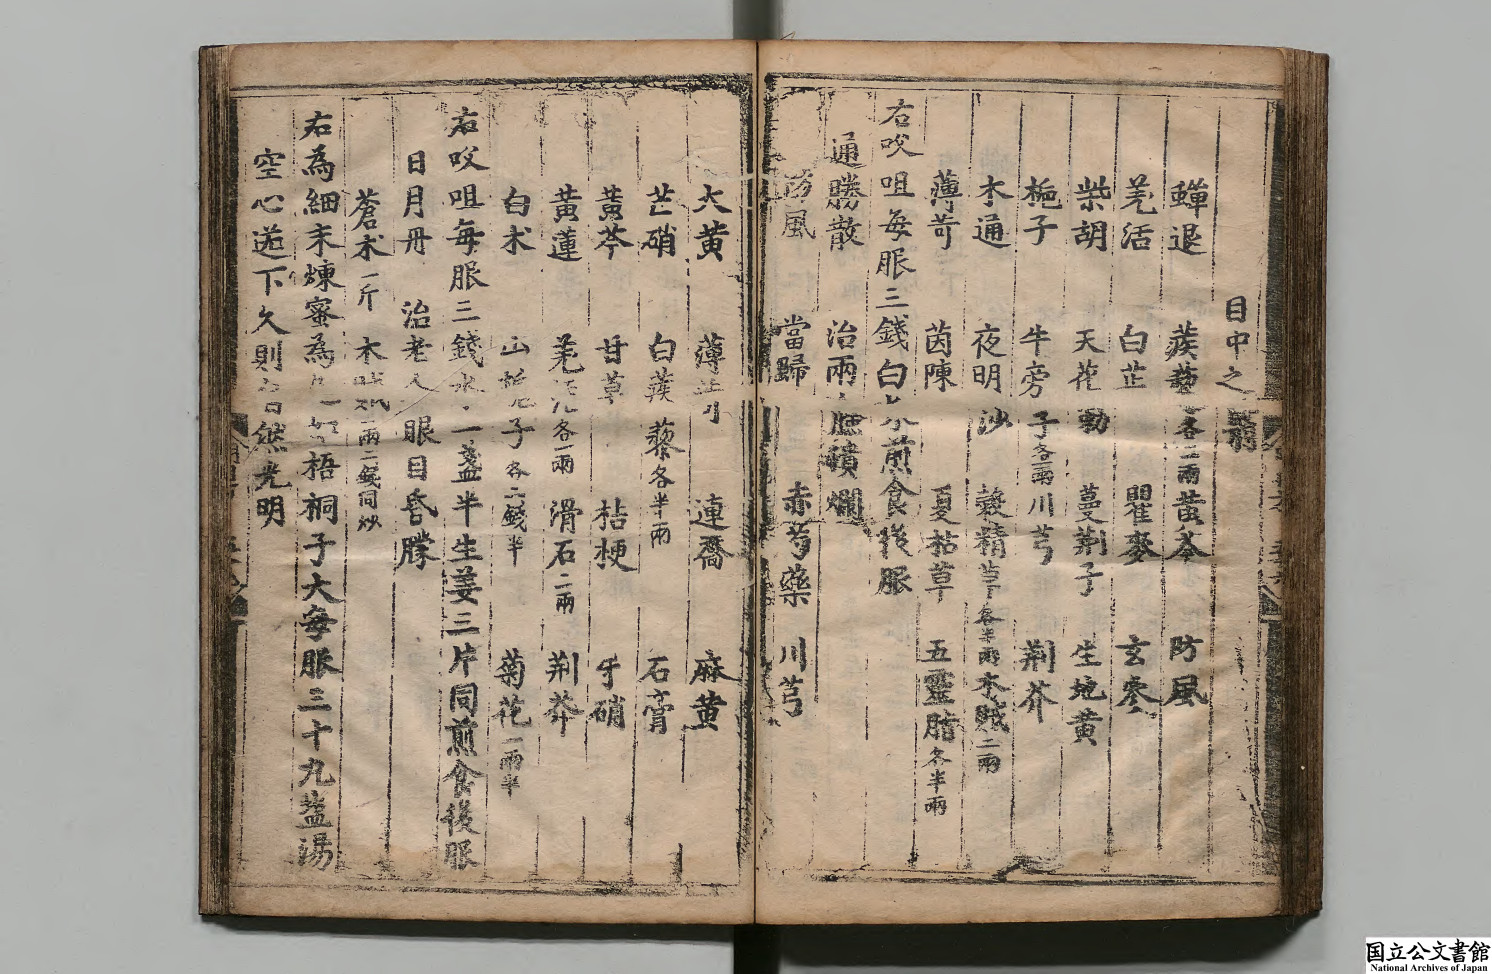 目中之翳
蟬退 蒺藜各二兩 黃芩 防風
羌活 白芷 瞿麥 玄參
柴胡 天花勒 蔓荆子 生地黃
梔子 牛旁子各兩 川芎 荆芥
木通 夜明沙 穀精草各半兩 木賊二兩
薄苛 茵陳 夏枯草 五靈脂各半兩
右㕮咀每服三錢白水煎食後服
通勝散 治兩瞼潰爛
防風 當歸 赤芍藥 川芎
大黃 薄苛 連喬 麻黃
芒硝 白蒺藜各半兩 石膏
黃芩 甘草 桔梗 牙硝
黃蓮 羌活各一兩 滑石二兩 荆芥
白术 山梔子各二錢半 菊花一兩半
右㕮咀每服三錢水一盞半生姜三片同煎食後服
日月丹 治老人眼目昏朦
蒼术一斤 木賊二兩二錢同炒
右為細末煉蜜為丸如梧桐子大每服三十九盐湯
空心送下久則自然光明
国立公文書館
National Archives of Japan